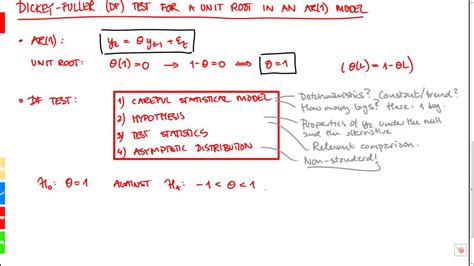 DICKEY-FULLER (DF) TEST FOR A UNIT ROOT IN AN AR(1) MODEL
• AR(1): y_t = θ y_{t-1} + ε_t
UNIT ROOT: θ(1) = 0 ⟺ 1-θ = 0 ⟺ θ = 1 (θ(L) = 1-θL)
• DF TEST:
1) CAREFUL STATISTICAL MODEL
2) HYPOTHESIS
3) TEST STATISTICS
4) ASYMPTOTIC DISTRIBUTION
Deterministics? Constant/trend?
How many lags? Here: 1 lag.
Properties of y_t under the null
and the alternative
Relevant comparison.
Non-standard!
H_0: θ = 1 AGAINST H_A: -1 < θ < 1